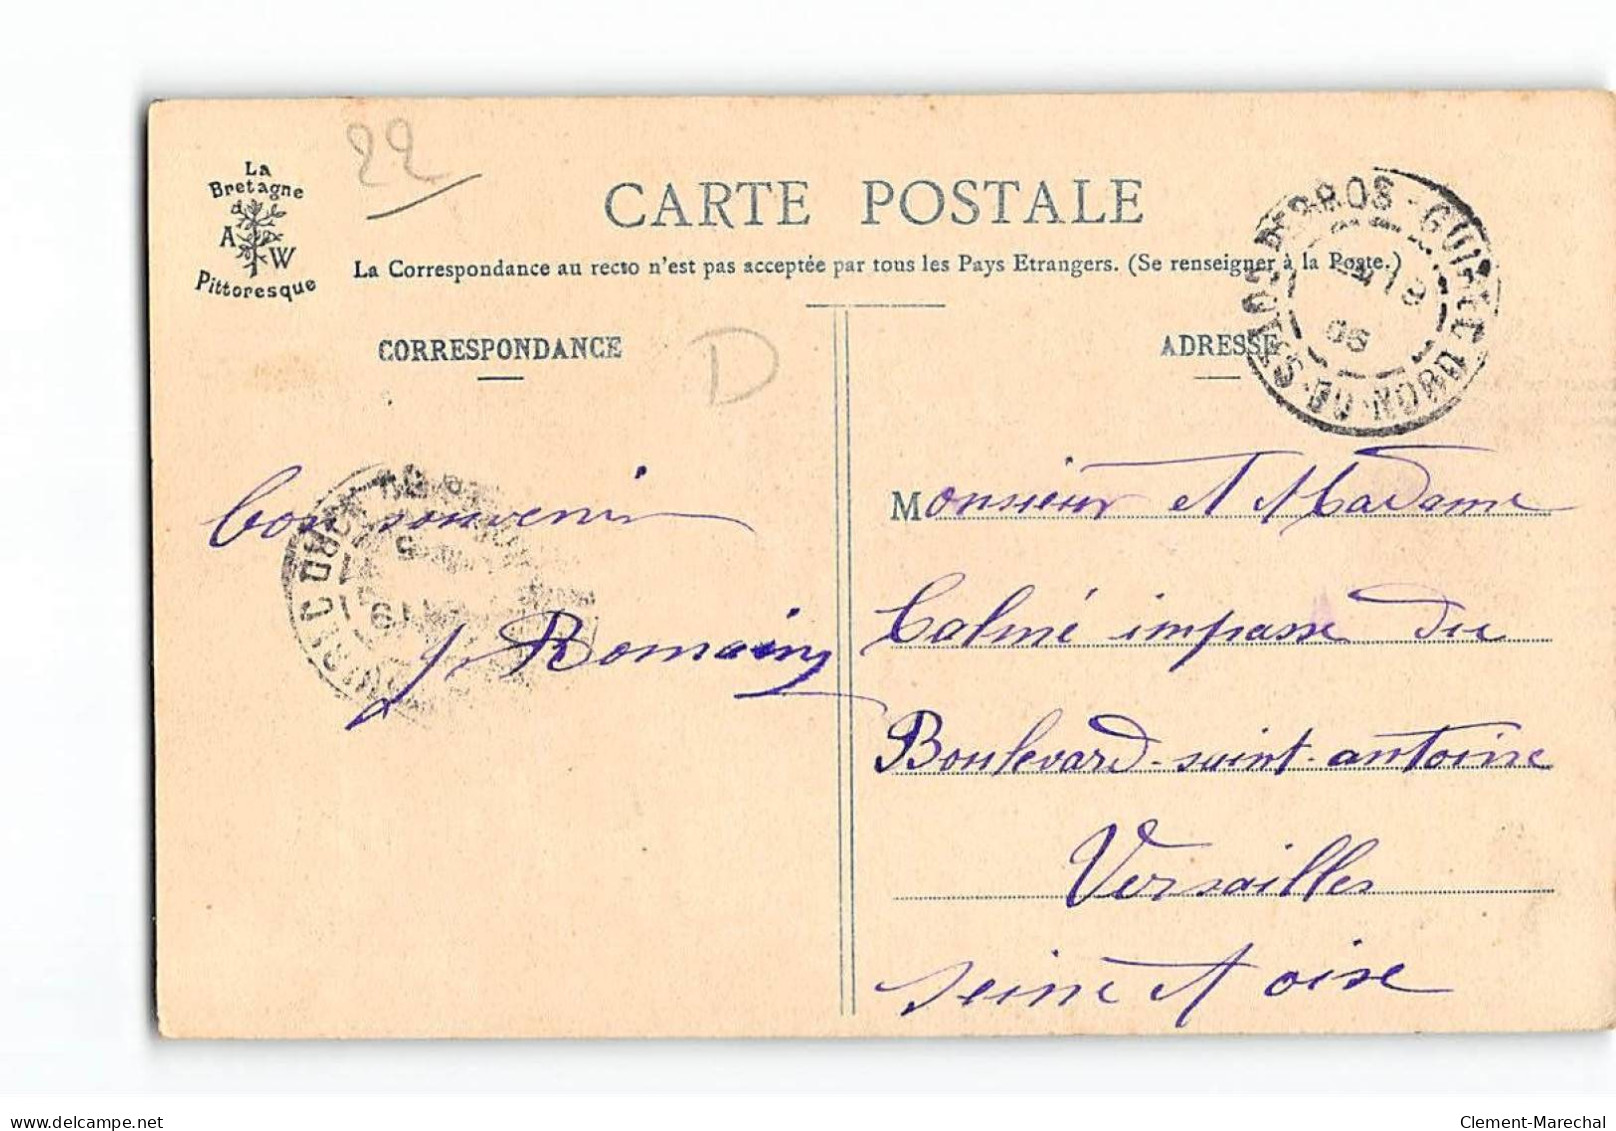 La
Bretagne
A W
Pittoresque
22
CARTE POSTALE
La Correspondance au recto n'est pas acceptée par tous les Pays Etrangers. (Se renseigner à la Poste.)
CORRESPONDANCE
D
ADRESSE
PERROS-GUIREC
COTES DU NORD
bon souvenir
J Romain
Monsieur et Madame
Calmé impasse du
Boulevard-saint-antoine
Versailles
seine et oise
delcampe.net
Clement-Marechal